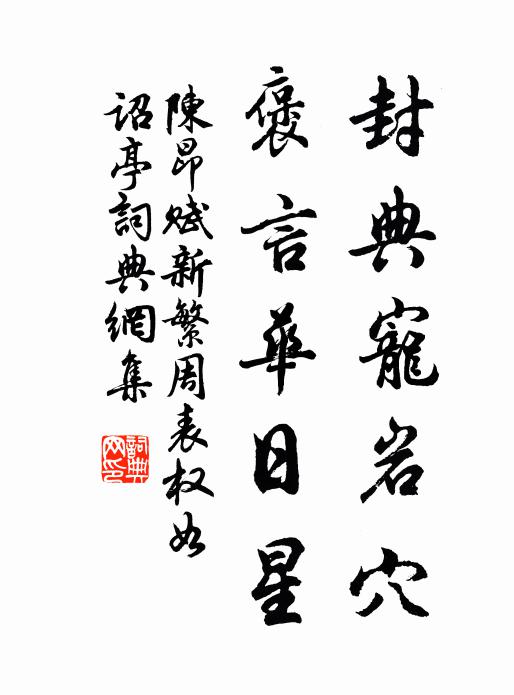 封典寵岩穴
褒言華日星
陳昂賦新繁周表权如
詔亭詞典網集
詞典网印